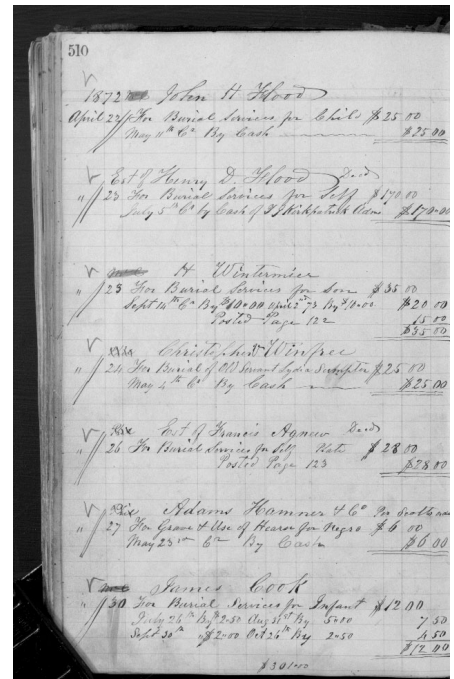 510
1872 John H Flood
April 22 For Burial Services for Child $25 00
May 11th Cr By Cash $25 00
Est of Henry D Flood Decd
" 23 For Burial Services for Self $170.00
July 5th Cr by Cash of T J Kirkpatrick Adms $170.00
H Wintermier
" 23 For Burial Services for Son $35 00
Sept 14th Cr By $10.00 April 2nd 73 By $10.00 $20 00
Posted Page 122 15 00
$35 00
Christopher Winfree
" 24 For Burial of Old Servant Lydia Sumpter $25 00
May 4th Cr By Cash $25 00
Est of Francis Agnew Decd
" 26 For Burial Services for Self $28 00
Posted Page 123 $28 00
Adams Hamner & Co Per Scott
" 27 For Grave & Use of Hearse for Negro $6 00
May 23rd Cr By Cash $6 00
James Cook
" 30 For Burial Services for Infant $12 00
July 26th By 2.50 Aug 31st By 5.00 7 50
Sept 30th $2.00 Oct 26th By 2.50 4 50
$12 00
$301.00